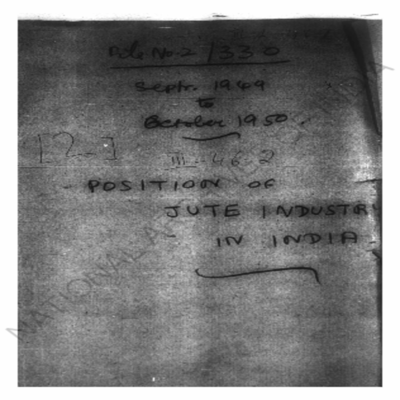 File No-2/330
Septr. 1949
to
October 1950.
[2-]
III-46-2
POSITION OF
JUTE INDUSTR
IN INDIA.
NATIONAL ARCHIVES OF INDIA